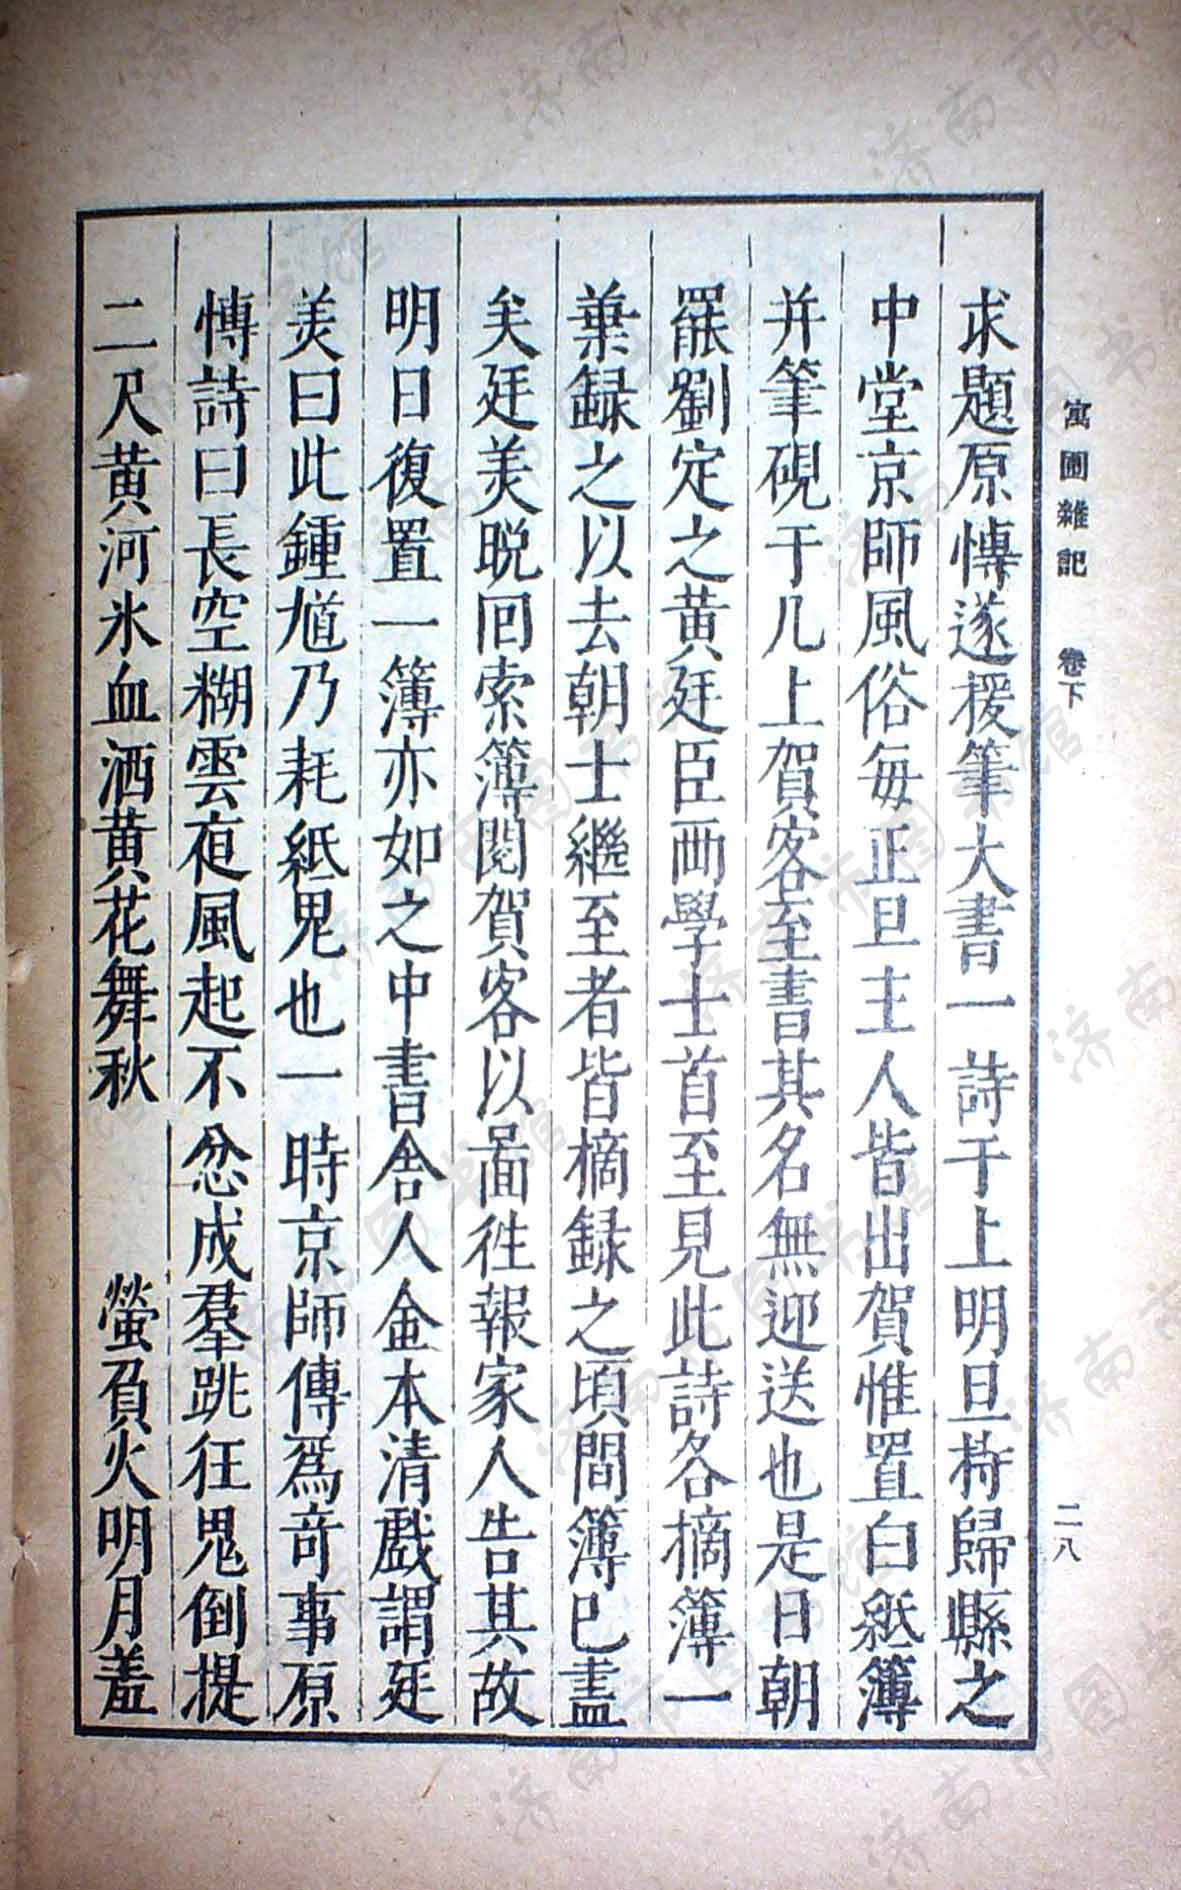 寓圃雜記　卷下
二八
求題原慱遂援筆大書一詩于上明旦持歸縣之
中堂京師風俗每正旦主人皆出賀惟置白紙簿
并筆硯于几上賀客至書其名無迎送也是日朝
罷劉定之黃廷臣兩學士首至見此詩各摘簿一
葉録之以去朝士繼至者皆摘録之頃間簿已盡
矣廷美晚回索簿閱賀客以啚徃報家人告其故
明日復置一簿亦如之中書舍人金本清戲謂廷
美曰此鍾馗乃耗紙鬼也一時京師傳爲竒事原
慱詩曰長空糊雲夜風起不忿成羣跳狂鬼倒提
二尺黃河氷血洒黃花舞秋　螢負火明月羞